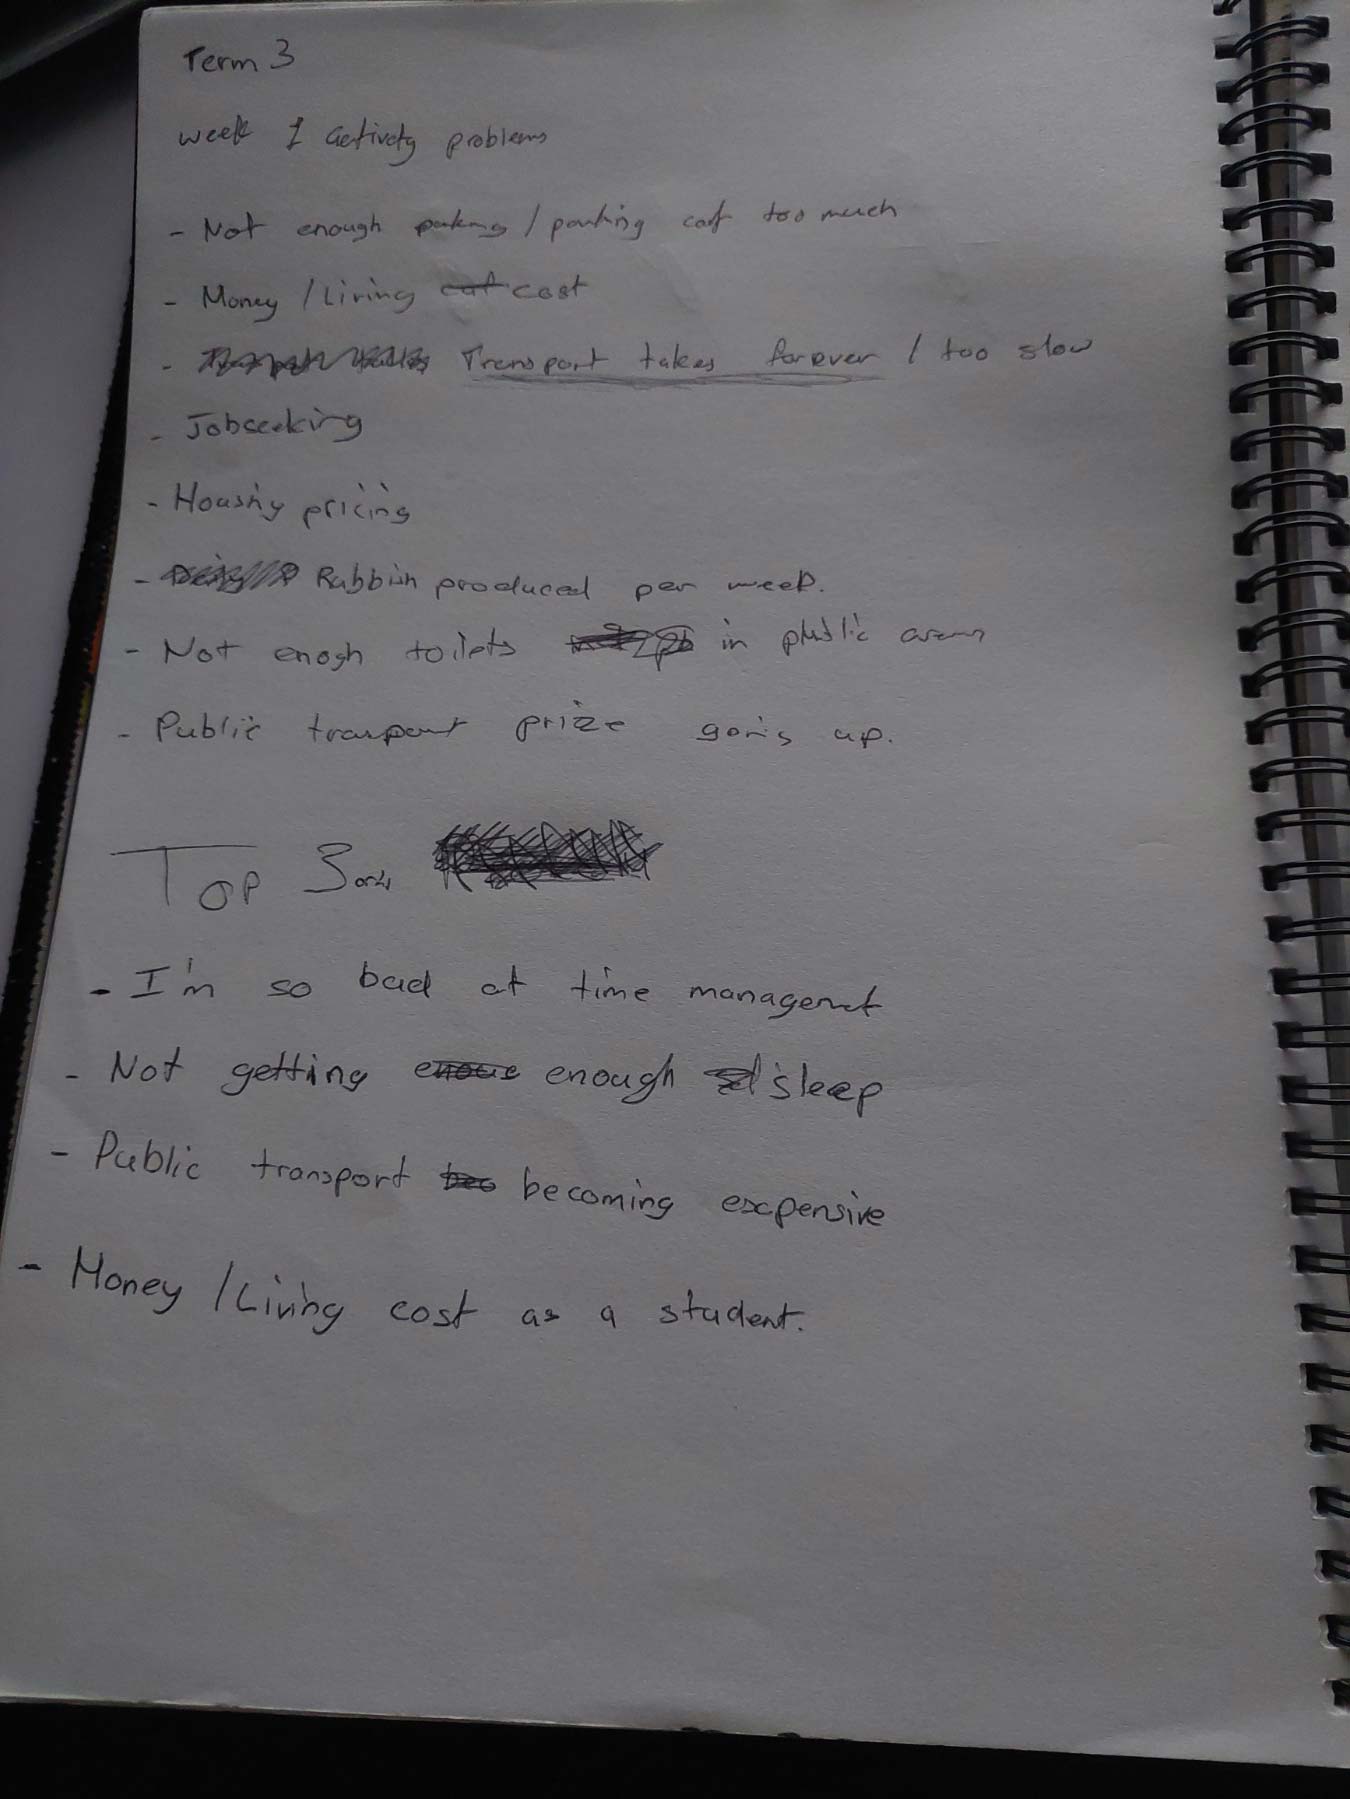 Term 3
week 1 activity problems
- Not enough parking / parking cost too much
- Money / Living cost
- Transport takes forever / too slow
- Jobseeking
- Housing pricing
- Rubbish produced per week.
- Not enogh toilets in public areas
- Public transport prize going up.
Top 3
- I'm so bad at time managemet
- Not getting enough sleep
- Public transport becoming expensive
- Money / Living cost as a student.